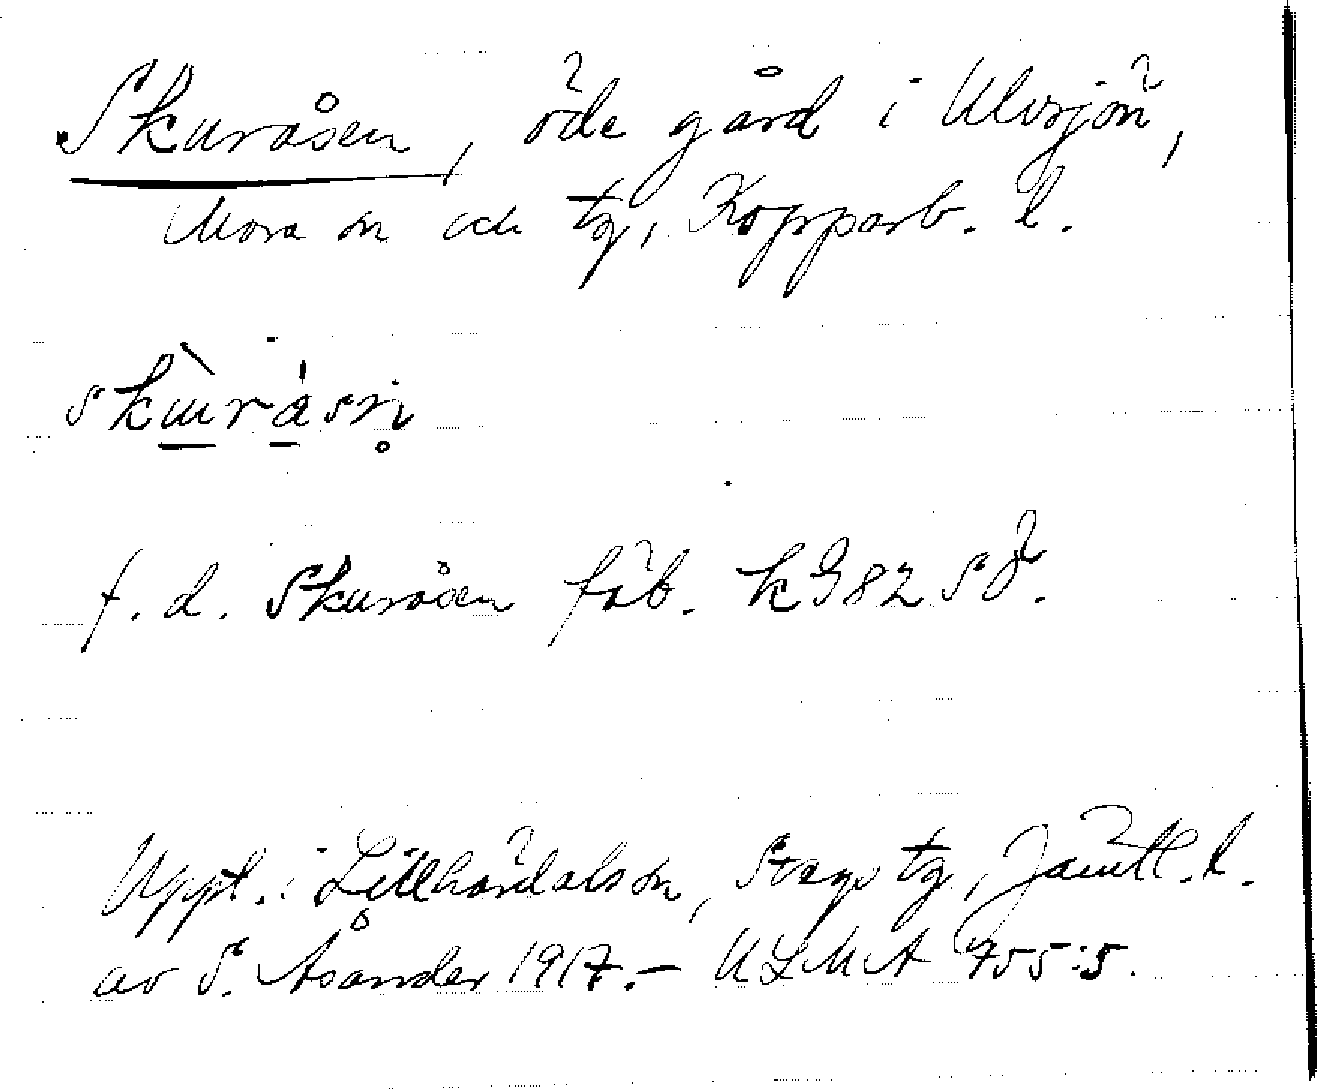 Skuråsen, öde gård i Ulvsjön,
Mora sn och tg, Kopparb. l.
f. d. Skuråsen fäb. k982 SÖ.
Uppt. i Lillhärdals sn, Svegs tg, Jämtl. l.
av S. Åsander 1917. – ULMA 755:5.